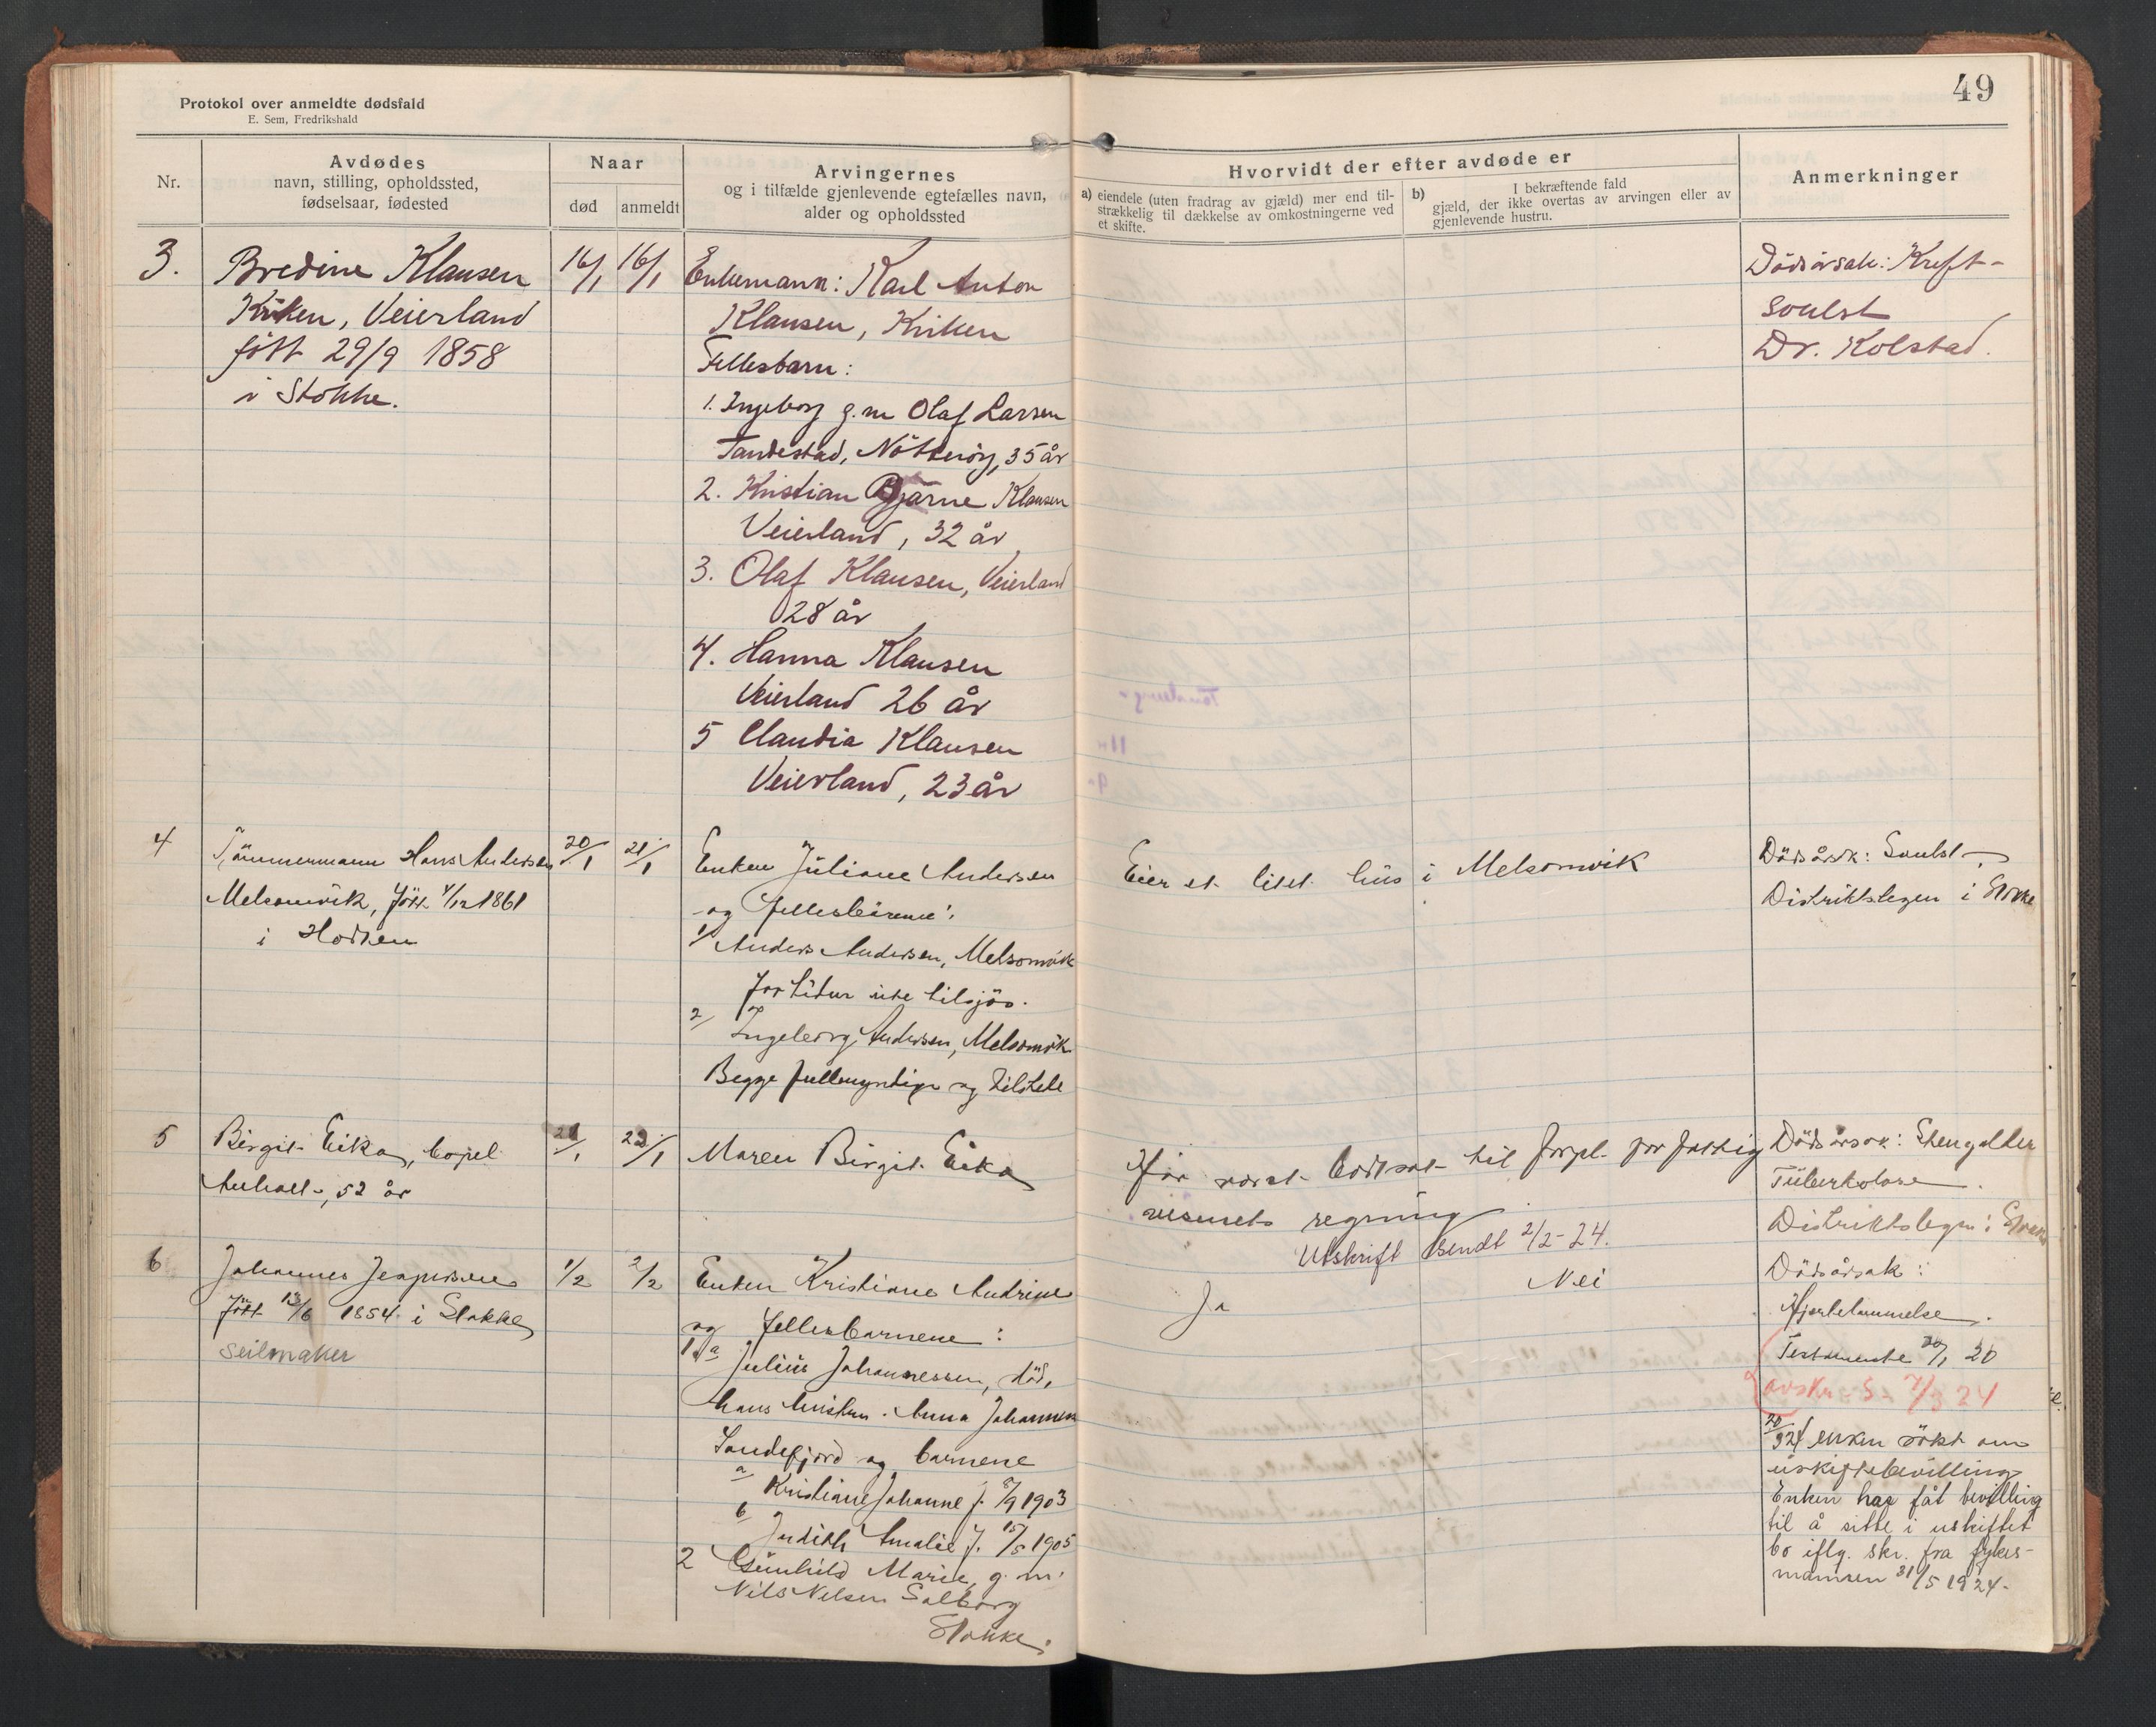 49
Protokol over anmeldte dødsfald
E. Sem, Fredrikshald
Nr.
Avdødes
navn, stilling, opholdssted,
fødselsaar, fødested
Naar
død
anmeldt
Arvingernes
og i tilfælde gjenlevende egtefælles navn,
alder og opholdssted
Hvorvidt der efter avdøde er
a) eiendele (uten fradrag av gjæld) mer end til-
strækkelig til dækkelse av omkostningerne ved
et skifte.
b) I bekræftende fald
gjæld, der ikke overtas av arvingen eller av
gjenlevende hustru.
Anmerkninger
3.
Bredine Klausen
Kriken, Veierland
født 29/9 1858
i Stokke.
16/1
16/1
Enkemann: Karl Anton
Klausen, Kriken
Fellesbarn:
1. Ingeborg g.m Olaf Larsen
Tandestad, Nötterøy, 35 år
2. Kristian Bjarne Klausen
Veierland, 32 år
3. Olaf Klausen, Veierland
28 år
4. Hanna Klausen
Veierland 26 år
5 Claudia Klausen
Veierland, 23 år
Dödsårsak: Kreft-
svulst
Dr. Kolstad.
4
Tömmermann Hans Andersen
Melsomvik, født /12 1861
i Hodsen
20/1
21/1
Enken Juliane Andersen
og fellesbarnene:
1/ Anders Andersen, Melsomvik
for tiden ute tilsjös.
2/ Ingeborg Andersen, Melsomvik
Begge fullmyndige og tilstede
Eier et litet hus i Melsomvik
Dödsårsk: Svulst
Distriktslegen i Stokke
5
Birgit Eika, Copel
Anhalt, 52 år
21/1
22/1
Maren Birgit Eika
Har været bortsat til forpl. for fattig
vesenets regning
Utskrift sendt 2/2-24.
Dödsårsak: 
Tüberkolose
Distriktslegen: Stokke
6
Johannes Jespersen
født 13/6 1854 i Stokke
Seilmaker
1/2
2/2
Enken Kristiane Andrine
og fellesbarnene:
1. Julius Johannessen, död,
hans hustru Anna Johannessen
Sandefjord og barnene
a Kristiane Johanne f. 8/9 1903
b Judith Amalie f. 15/5 1905
2 Gunhild Marie, g. m.
Nils Nilsen Solborg
Stokke.
Ja
Nei
Dödsårsak:
Hjertelammelse.
Testamente 20/1 20
avskr. S. 7/3 24
20/3 24 enken søkt om
uskiftebevilling
Enken har fåt bevilling
til å sitte i uskiftet
bo iflg. skr. fra fylkes-
mannen 31/5 1924.